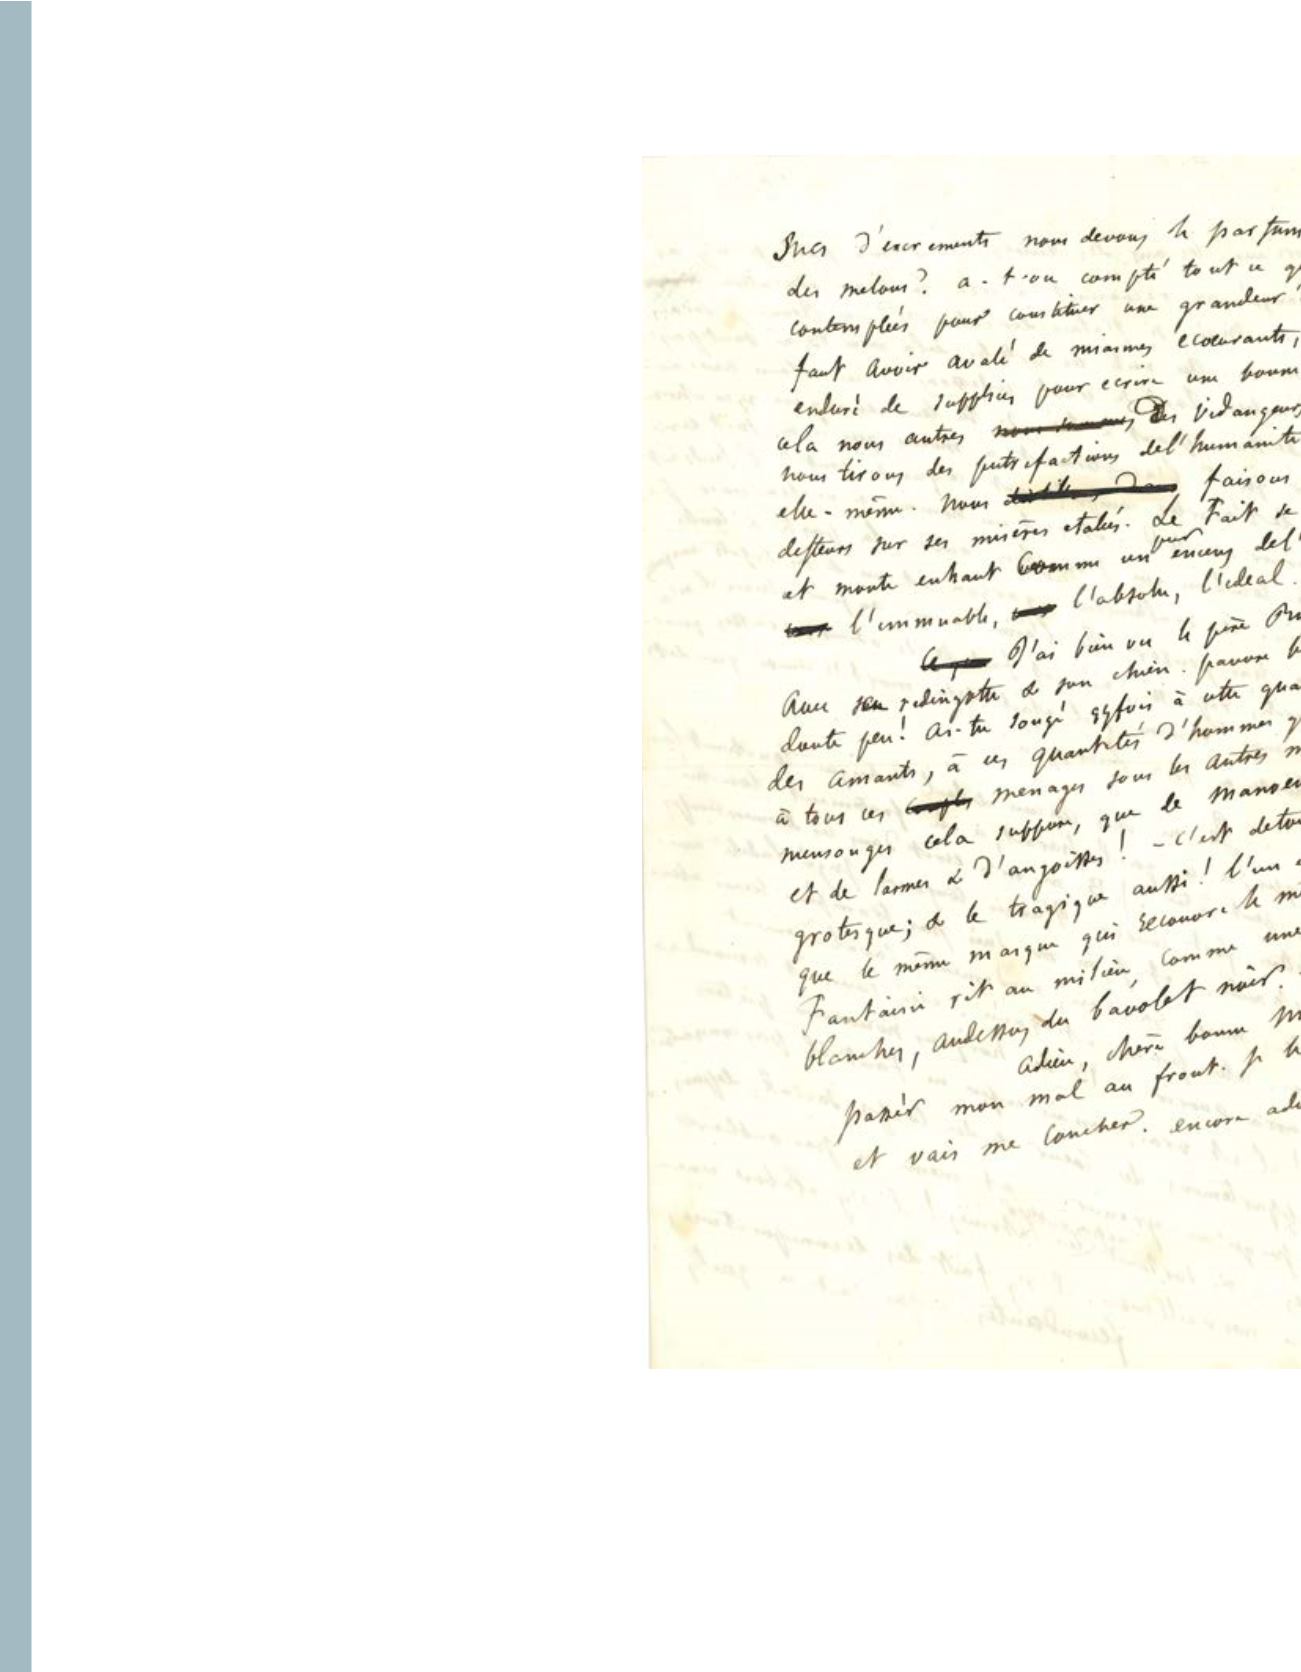 Sucs d'excrements nous devons le parfum
des melons? a-t-on compté tout ce q
contemplées pour constituer une grandeur
faut avoir avalé de miasmes ecoeurants,
enduré de supplices pour ecrire une bonne
cela nous autres nous sommes Des vidangeurs
nous tirons des putrefactions del'humanité
elle-même. nous faisons
sur ses misères etalées. Le Fait se
et monte enhaut Comme un pur encens del'
l'immuable, l'absolu, l'ideal.
J'ai bien vu le père
Avec sa redingotte & son chien. pauvre
doute peu! As-tu songé qqfois à cette qua
des amants, à ces quantités d'hommes q
à tous ces menages sous les autres m
mensonges cela suppose, que de manoeu
et de larmes & d'angoisses! - C'est detou
grotesque; & le tragique aussi! l'un
que le même masque qui recouvre le m
Fantaisie rit au milieu, comme une
blanches, audessus du bavolet noir.
adieu, chère bonne M
passer mon mal au front. je
et vais me coucher. encore adi